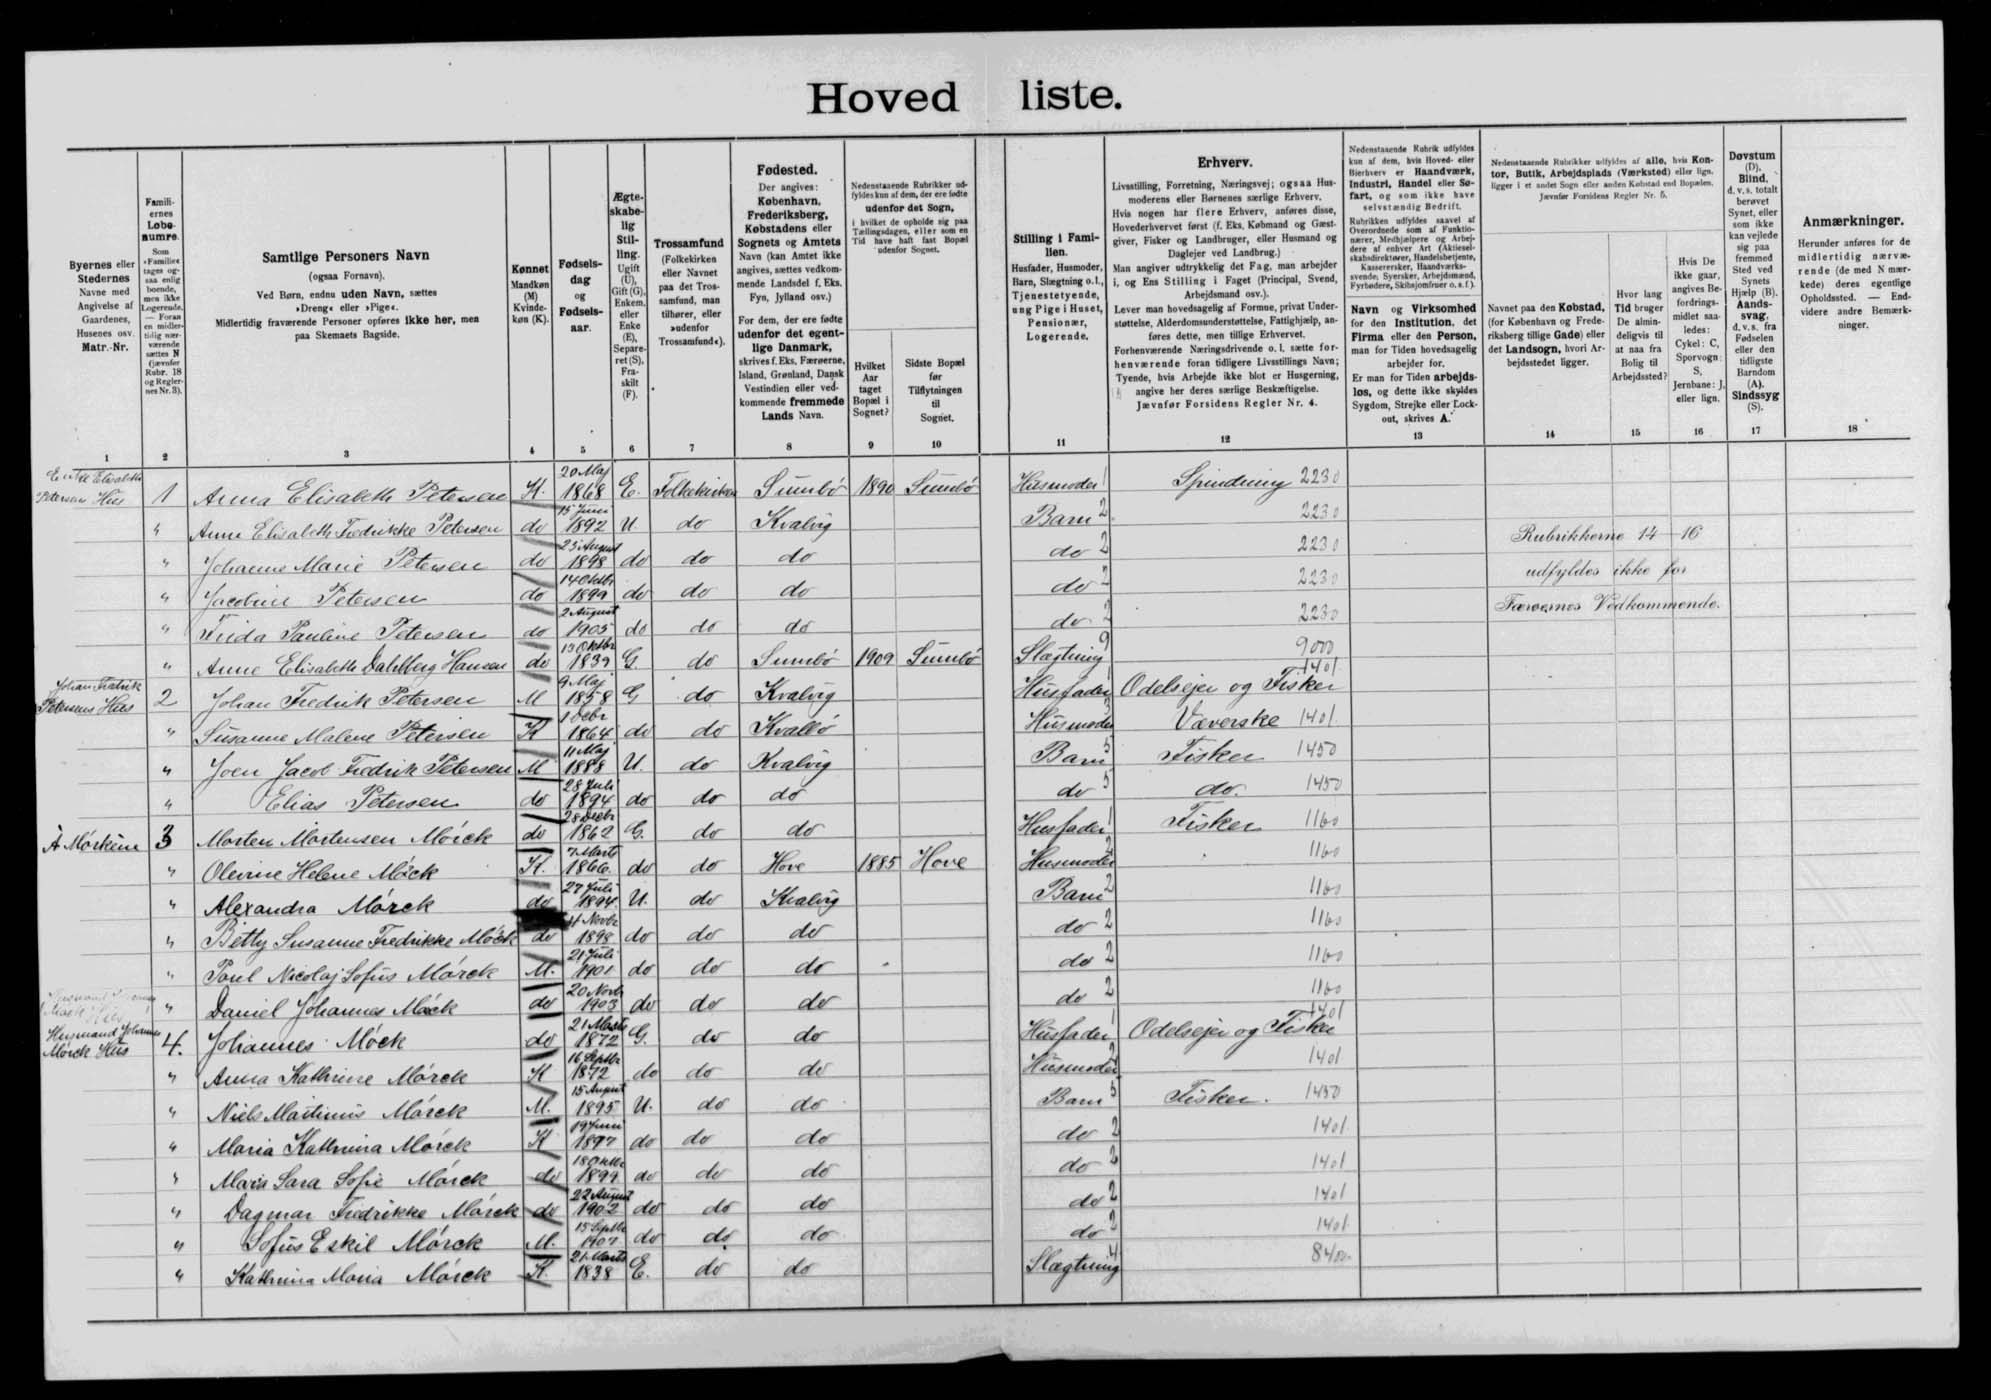 Hoved liste.
Byernes eller
Stedernes
Navne med
Angivelse af
Gaardenes,
Husenes osv.
Matr.-Nr.
1
Famili-
ernes
Løbe-
numre.
Som
»Familie«
tages og-
saa enlig
boende,
men ikke
Logerende.
— Foran
en midler-
tidig nær-
værende
sættes N
(jævnfør
Rubr. 18
og Regler-
nes Nr. 3).
2
Samtlige Personers Navn
(ogsaa Fornavn).
Ved Børn, endnu uden Navn, sættes
»Dreng« eller »Pige«.
Midlertidig fraværende Personer opføres ikke her, men
paa Skemaets Bagside.
3
Kønnet
Mandkøn
(M)
Kvinde-
køn (K).
4
Fødsels-
dag
og
Fødsels-
aar.
5
Ægte-
skabe-
lig
Stil-
ling.
Ugift
(U),
Gift (G),
Enkem.
eller
Enke
(E),
Separe-
ret (S),
Fra-
skilt
(F).
6
Trossamfund
(Folkekirken
eller Navnet
paa det Tros-
samfund, man
tilhører, eller
»udenfor
Trossamfund«).
7
Fødested.
Der angives:
København,
Frederiksberg,
Købstadens eller
Sognets og Amtets
Navn (kan Amtet ikke
angives, sættes vedkom-
mende Landsdel f. Eks.
Fyn, Jylland osv.)
For dem, der ere fødte
udenfor det egent-
lige Danmark,
skrives f. Eks. Færøerne,
Island, Grønland, Dansk
Vestindien eller ved-
kommende fremmede
Lands Navn.
8
Nedenstaaende Rubrikker ud-
fyldes kun af dem, der ere fødte
udenfor det Sogn,
i hvilket de opholde sig paa
Tællingsdagen, eller som en
Tid have haft fast Bopæl
udenfor Sognet.
Hvilket
Aar
taget
Bopæl i
Sognet?
9
Sidste Bopæl
før
Tilflytningen
til
Sognet.
10
Stilling i Fami-
lien.
Husfader, Husmoder,
Barn, Slægtning o.l.,
Tjenestetyende,
ung Pige i Huset,
Pensionær,
Logerende.
11
Erhverv.
Livsstilling, Forretning, Næringsvej; ogsaa Hus-
moderens eller Børnenes særlige Erhverv.
Hvis nogen har flere Erhverv, anføres disse,
Hovederhvervet først (f. Eks. Købmand og Gæst-
giver, Fisker og Landbruger, eller Husmand og
Daglejer ved Landbrug.)
Man angiver udtrykkelig det Fag, man arbejder
i, og Ens Stilling i Faget (Principal, Svend,
Arbejdsmand osv.).
Lever man hovedsagelig af Formue, privat Under-
støttelse, Alderdomsunderstøttelse, Fattighjælp, an-
føres dette, men tillige Erhvervet.
Forhenværende Næringsdrivende o. l. sætte for-
henværende foran tidligere Livsstillings Navn;
Tyende, hvis Arbejde ikke blot er Husgerning,
angive her deres særlige Beskæftigelse.
Jævnfør Forsidens Regler Nr. 4.
12
Nedenstaaende Rubrik udfyldes
kun af dem, hvis Hoved- eller
Bierhverv er Haandværk,
Industri, Handel eller Sø-
fart, og som ikke have
selvstændig Bedrift.
Rubrikken udfyldes saavel af
Overordnede som af Funktio-
nærer, Medhjælpere og Arbej-
dere af enhver Art (Aktiesel-
skabsdirektører, Handelsbetjente,
Kassererseker, Haandværks-
svende, Syersker, Arbejdsmænd,
Fyrbødere, Skibsjomfruer o. s. f.).
Navn og Virksomhed
for den Institution, det
Firma eller den Person,
man for Tiden hovedsagelig
arbejder for.
Er man for Tiden arbejds-
løs, og dette ikke skyldes
Sygdom, Strejke eller Lock-
out, skrives A.
13
Nedenstaaende Rubrikker udfyldes af alle, hvis Kon-
tor, Butik, Arbejdsplads (Værksted) eller lign.
ligger i et andet Sogn eller anden Købstad end Bopælen.
Jævnfør Forsidens Regler Nr. 5.
Navnet paa den Købstad,
(for København og Frede-
riksberg tillige Gade) eller
det Landsogn, hvori Ar-
bejdsstedet ligger.
14
Hvor lang
Tid bruger
De almin-
deligvis til
at naa fra
Bolig til
Arbejdssted?
15
Hvis De
ikke gaar,
angives Be-
fordrings-
midlet saa-
ledes:
Cykel: C,
Sporvogn:
S,
Jernbane: J,
eller lign.
16
Døvstum
(D),
Blind,
d. v. s. totalt
berøvet
Synet, eller
som ikke
kan vejlede
sig paa
fremmed
Sted ved
Synets
Hjælp (B).
Aands-
svag,
d. v. s. fra
Fødselen
eller den
tidligste
Barndom
(A).
Sindssyg
(S).
17
Anmærkninger.
Herunder anføres for de
midlertidig nærvæ-
rende (de med N mær-
kede) deres egentlige
Opholdssted. — End-
videre andre Bemærk-
ninger.
18
Enke Elisabeth
Petersens Hus 1 Anna Elisabeth Petersen K. 20 Maj 1868 E. Folkekirken Sumbø 1890 Sumbø Husmoder 1 Spindning 2230
" Anne Elisabeth Fredrikke Petersen do 15 Juni 1892 U. do Kvalvig Barn 2 2230
" Johanne Marie Petersen do 23 August 1898 do do do do 2 2230
" Jacobine Petersen do 14 Oktbr 1899 do do do do 2 2230
" Frida Pauline Petersen do 2 August 1905 do do do do 2 2230
Rubrikkerne 14-16
udfyldes ikke for
Færøernes Vedkommende.
" Anne Elisabeth Dahlberg Hansen do 13 Oktbr 1839 G. do Sumbø 1909 Sumbø Slægtning 9 9000
Johan Fredrik
Petersens Hus 2 Johan Fredrik Petersen M 9 Maj 1858 G do Kvalvig Husfader 1 Odelsejer og Fisker 1401
" Susanne Malene Petersen K 1 Febr 1864 do do Husmoder 3 Væverske 1401
" Joen Jacob Fredrik Petersen M 11 Maj 1888 U. do Kvalvig Barn 5 Fisker 1450
" Elias Petersen do 28 Juli 1894 do do do do 5 do. 1450
À Mørkene 3 Morten Mortensen Mörck do 28 Decbr 1862 G. do do Husfader 1 Fisker 1160
" Olevine Helene Möck K. 7 Marts 1866 do do Hove 1885 Hove Husmoder 2 1160
" Alexandra Mörck do 27 Juli 1894 U. do Kvalvig Barn 2 1160
" Betty Susanne Fredrikke Möck do 4 Novbr 1898 do do do do 2 1160
" Poul Nicolaj Sofus Mörck M. 21 Juli 1901 do do do do 2 1160
" Daniel Johannes Möck do 20 Novbr 1903 do do do do 2 1160
Husmand Johannes
Mörck Hus 4. Johannes Möck do 21 Marts 1872 G. do do Husfader 1 Odelsejer og Fisker 1401
" Anna Kathrine Mörck K 16 Septbr 1872 do do do Husmoder 2 1401
" Niels Martinus Mörck M. 15 August 1895 U. do do Barn 5 Fisker. 1450
" Maria Kathrina Mörck K 19 Juni 1897 do do do do 2 1401
" Maria Sara Sofie Mörck do 18 Oktbr 1899 do do do do 2 1401
" Dagmar Fredrikke Mörck do 22 August 1902 do do do do 2 1401
" Sofus Eskil Mörck M. 15 Septbr 1907 do do do do 2 1401
" Kathrina Maria Mörck K. 21 Marts 1838 E. do do Slægtning 4 8400